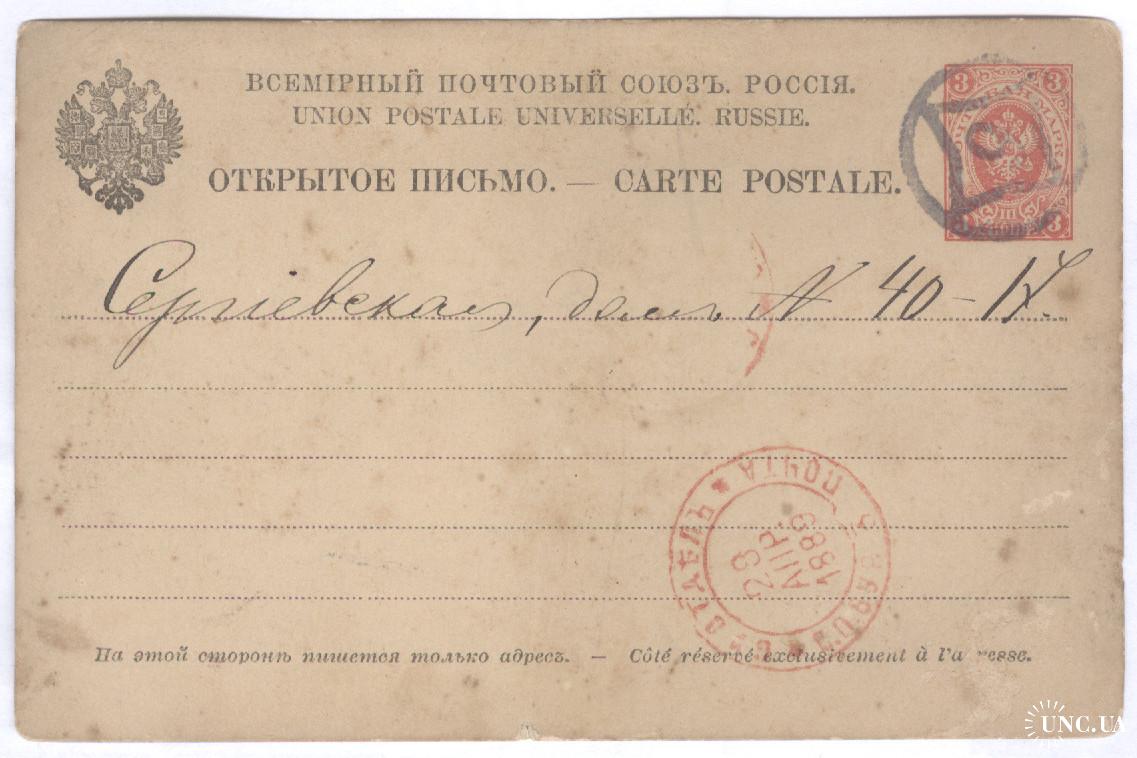 ВСЕМІРНЫЙ ПОЧТОВЫЙ СОЮЗЪ. РОССІЯ.
UNION POSTALE UNIVERSELLE. RUSSIE.
ОТКРЫТОЕ ПИСЬМО. — CARTE POSTALE.
3 3
ПОЧТОВАЯ МАРКА
III
3 3
Сергіевская, домъ N 40-14.
ПОЧТА
28
АПР.
1889
На этой сторонѣ пишется только адресъ. — Côté réservé exclusivement à l'a resse.
UNC.UA